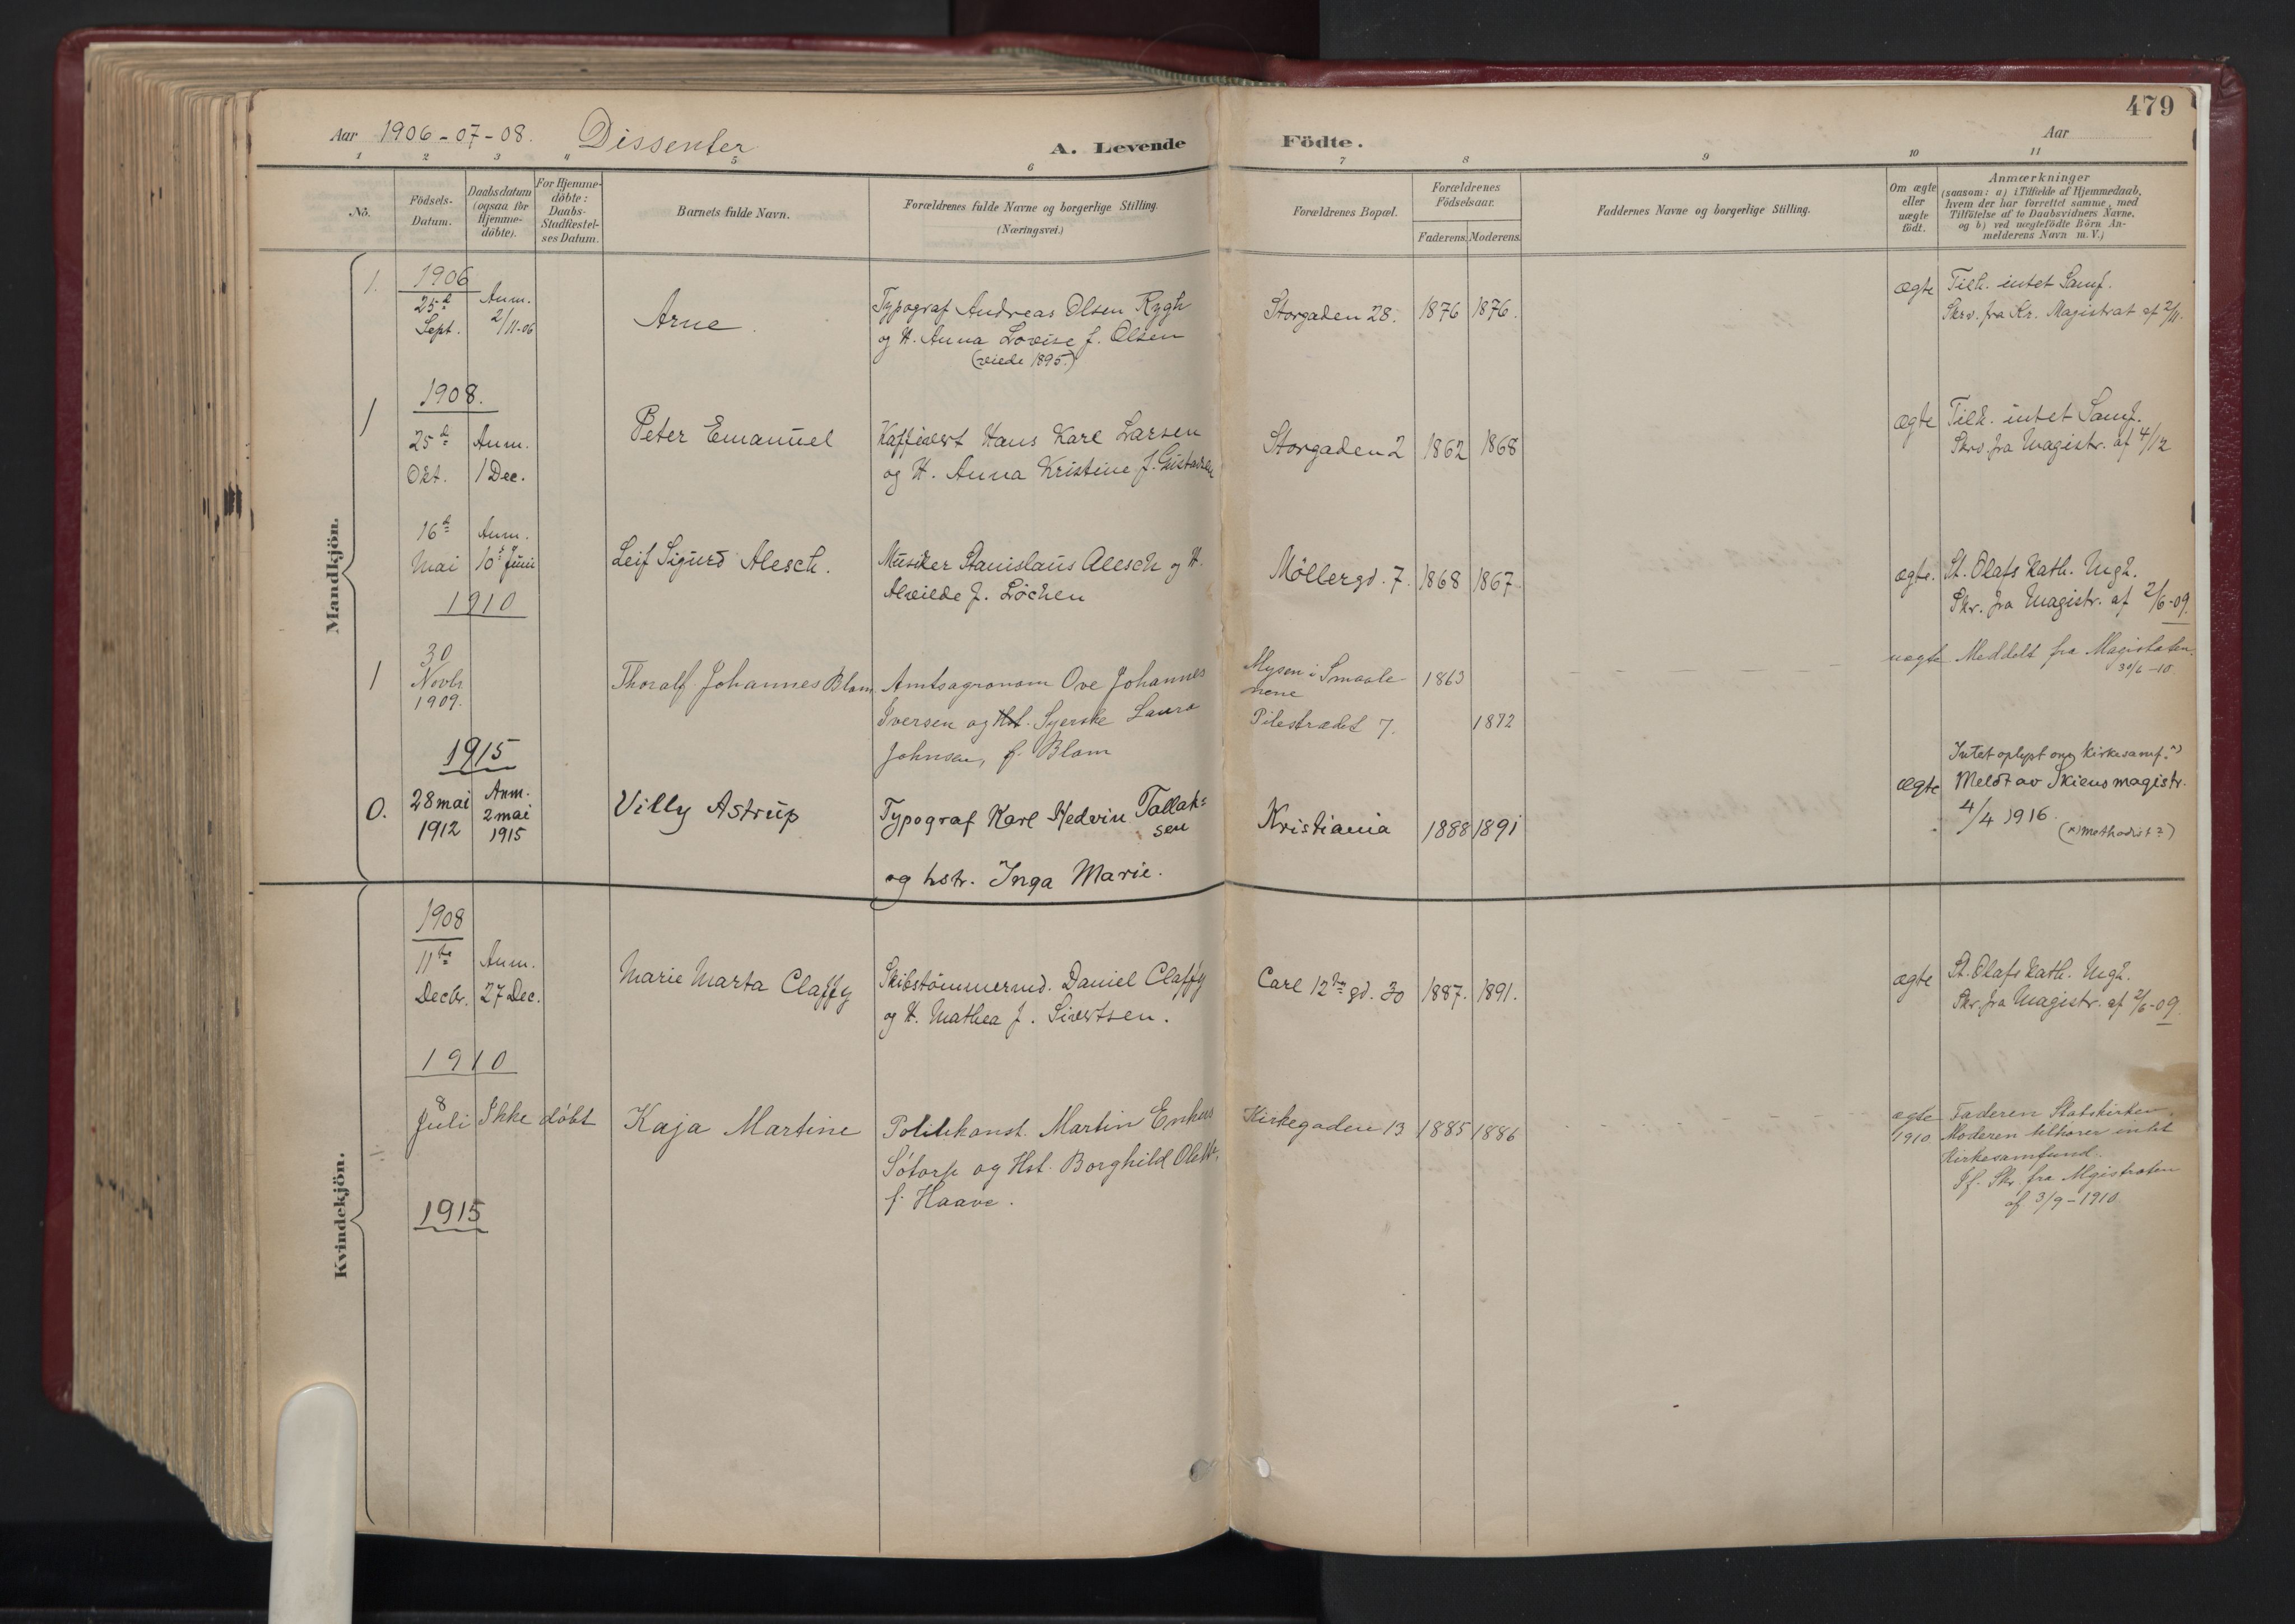 479
Aar 1906-07-08. Dissenter A. Levende Födte. Aar
1 2 3 4 5 6 7 8 9 10 11
No.
Födsels-Datum.
Daabsdatum (ogsaa for Hjemme-döbte).
For Hjemme-döbte: Daabs-Stadfæstel-ses Datum.
Barnets fulde Navn.
Forældrenes fulde Navne og borgerlige Stilling.
(Næringsvei.)
Forældrenes Bopæl.
Forældrenes Födselsaar.
Faderens. Moderens.
Faddernes Navne og borgerlige Stilling.
Om ægte eller uægte födt.
Anmærkninger
(saasom: a) i Tilfælde af Hjemmedaab,
hvem der har forrettet samme, med
Tilföielse af to Daabsvidners Navne,
og b) ved uægtefödte Börn An-
melderens Navn m. V.)
Mandkjön.
1. 1906
25de Sept.
Anm. 2/11-06
Arne.
Typograf Andreas Olsen Rygh
og H. Anna Lovise f. Olsen
(viede 1895.)
Storgaden 28. 1876 1876.
ægte
Tilh. intet Samf.
Skrv. fra Kr. Magistrat af 2/11.
1908.
1
25de Okt.
Anm. 1 Dec.
Peter Emanuel
Kaffivert Hans Karl Larsen
og H. Anna Kristine f.
Storgaden 2 1862 1868
ægte
Tilh. intet Samf.
Skrv. fra Magistr. af 4/12
16de Mai
Anm. 10de Juni
Leif Sigurd Alesch.
Musiker Stanislaus Alesch og H.
Alvilde f. Löchen
Möllergd. 7. 1868 1867
ægte.
St. Olafs Kath. Mgh.
Skr. fra Magistr. af 2/6-09.
1910
1
30 Novbr 1909.
Thoralf Johannes Blom
Amtsagronom Ove Johannes
Iversen og Hst. Syerske Laura
Johnsen, f. Blom
Mysen i Smaale-
nene
Pilestrædet 7.
1863
1872
uægte
Meddelt fra Magistraten.
30/6-10.
1915
0.
28 mai 1912
Anm. 2 mai 1915
Villy Astrup
Typograf Karl Hedvin Tallak=
sen
og hstr. Inga Marie.
Kristiania 1888 1891
ægte
Intet oplyst om kirkesamf. x)
Meldt av Skiens magistr.
4/4 1916.
(x) methodist?)
Kvindekjön.
1908
11te Decbr.
Anm. 27 Dec.
Marie Marta Claffy
Skibstömmermd. Daniel Claffy
og H. Mathea f. Sivertsen.
Carl 12tes gd. 30 1887. 1891.
ægte
St. Olafs Kath. Mgh.
Skr. fra Magistr. af 2/6-09.
1910
8 Juli
Ikke döbt
Kaja Martine
Politikonst. Martin
Sötorp og Hst. Borghild
f. Haave.
Kirkegaden 13 1885 1886
ægte
1910
Faderen Statskirken.
Moderen tilhörer intet
Kirkesamfund.
Jf. Skr. fra Mgistraten
af 3/9-1910
1915